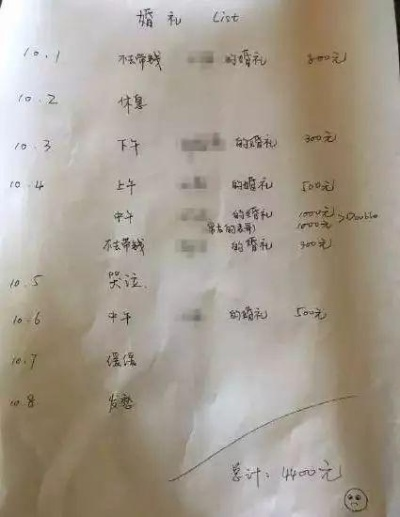 婚礼 List
10.1 不去带钱 的婚礼 800元
10.2 休息
10.3 下午 的婚礼 300元
10.4 上午 的婚礼 500元
中午 的婚礼 1000元 >Double
1000元
不去带钱 的婚礼 300元
10.5 哭泣
10.6 中午 的婚礼 500元
10.7 缓缓
10.8 发愁
总计：4400元